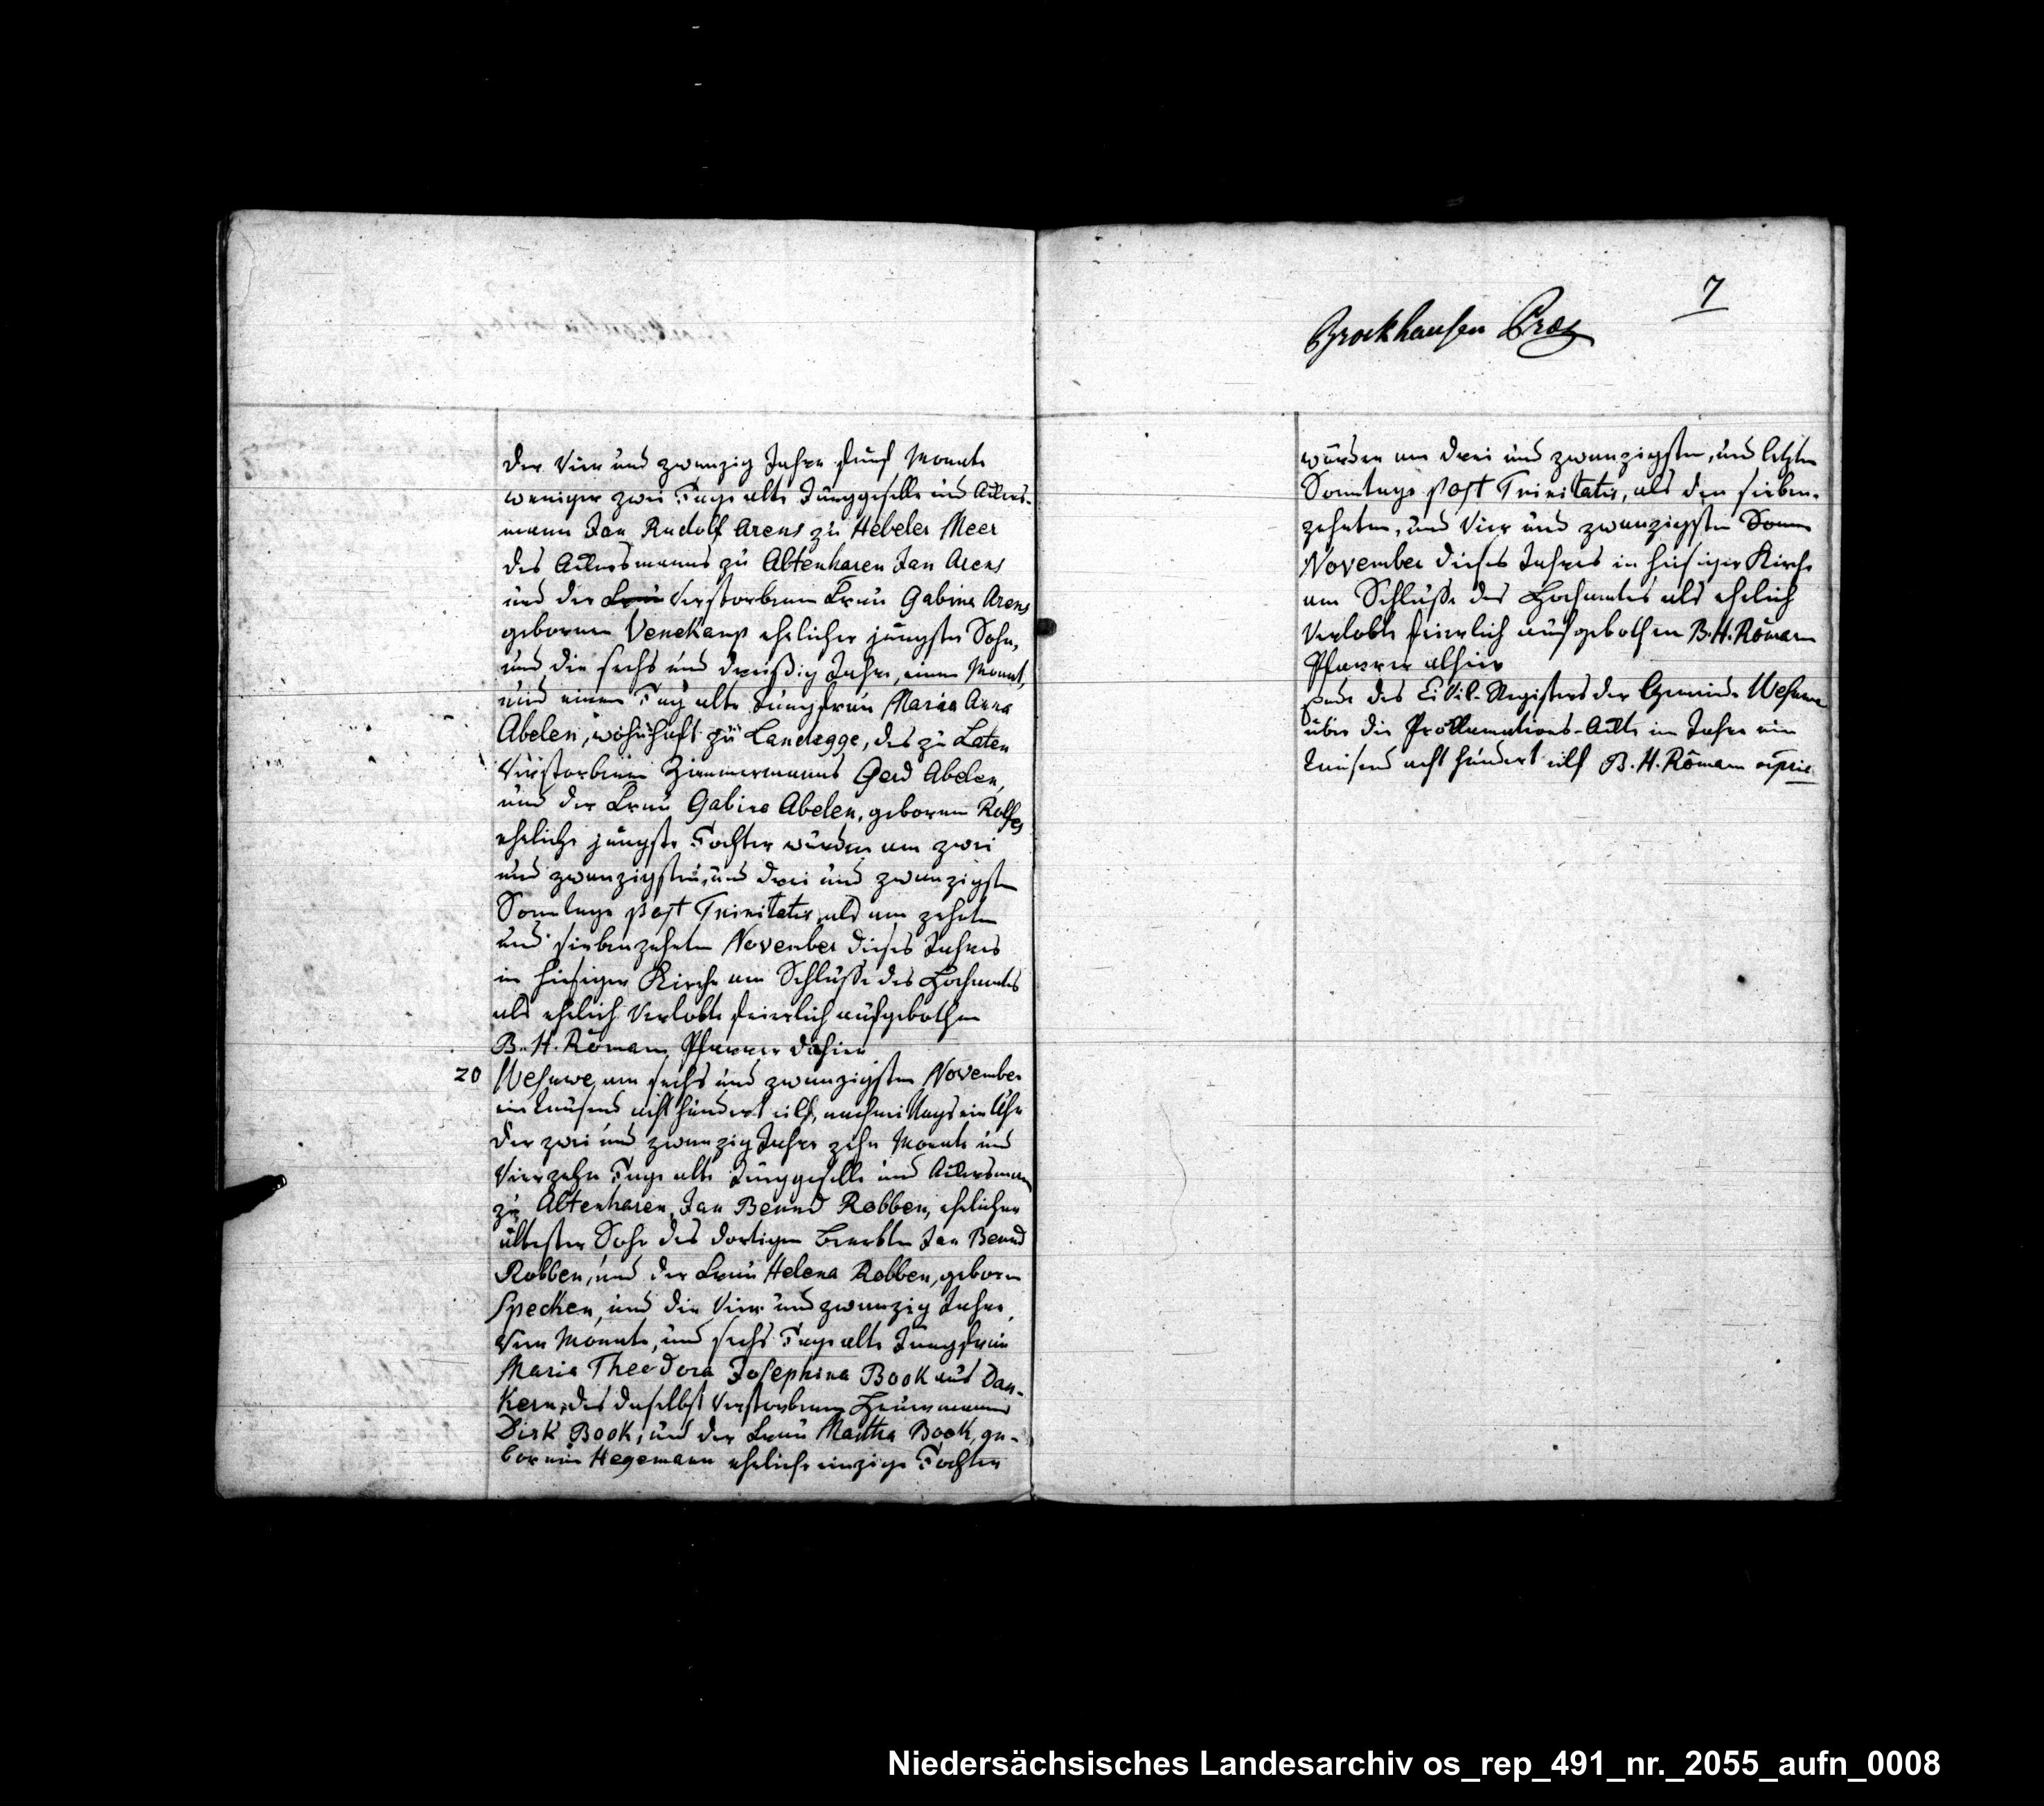 der vier und zwanzig Jahre fünf Monate
weniger zwei Tage alte Junggeselle und Ackers-
mann Jan Rudolf Arens zu Hebeler Meer
des Ackersmanns zu Altenharen Jan Arens
und der Frau verstorbenen Frau Gabina Arens
gebornen Venekamp ehelicher jüngster Sohn,
und die sechs und dreißig Jahre, einen Monat,
und einen Tag alte Jungfrau Maria Anna
Abelen, wohnhaft zu Landegge, des zu Laten
verstorbenen Zimmermanns Gerd Abelen,
und der Frau Gabina Abelen, gebornen Rolfes
eheliche jüngste Tochter wurden am zwei
und zwanzigsten, und drei und zwanzigsten
Sonntage post Trinitatis, als am zehnten
und siebenzehnten November dieses Jahres
in hiesiger Kirche am Schlusse des Hochamtes
als ehelich Verlobte feierlich aufgebothen
B. H. Römann Pfarrer dahier
20 Wesuwe, am sechs und zwanzigsten November
ein tausend acht hundert eilf, nachmittags ein Uhr
der zwei und zwanzig Jahre zehn Monate und
vierzehn Tage alte Junggeselle und Ackersmann
zu Altenharen, Jan Bernd Robben, ehelicher
ältester Sohn des dortigen Beerbten Jan Bernd
Robben, und der Frau Helena Robben, geboren
Specken, und die vier und zwanzig Jahre,
vier Monate, und sechs Tage alte Jungfrau
Maria Theodora Josephina Book aus Dan-
kern, des daselbst verstorbenen Heuermanns
Dirk Book, und der Frau Martha Book, ge-
bornen Hegemann eheliche einzige Tochter
7
Brockhausen Präs
wurden am drei und zwanzigsten, und letzten
Sonntage post Trinitatis, als den sieben-
zehnten, und vier und zwanzigsten Sonn
November dieses Jahres in hiesiger Kirche
am Schlusse des Hochamtes als ehelich
Verlobte feierlich aufgebothen B. H. Römann
Pfarrer alhier
Ende des Civil-Registers der Gemeinde Wesuwe
über die Proklamations-Akte im Jahre ein
tausend acht hundert eilf B. H. Römann
Niedersächsisches Landesarchiv os_rep_491_nr._2055_aufn_0008